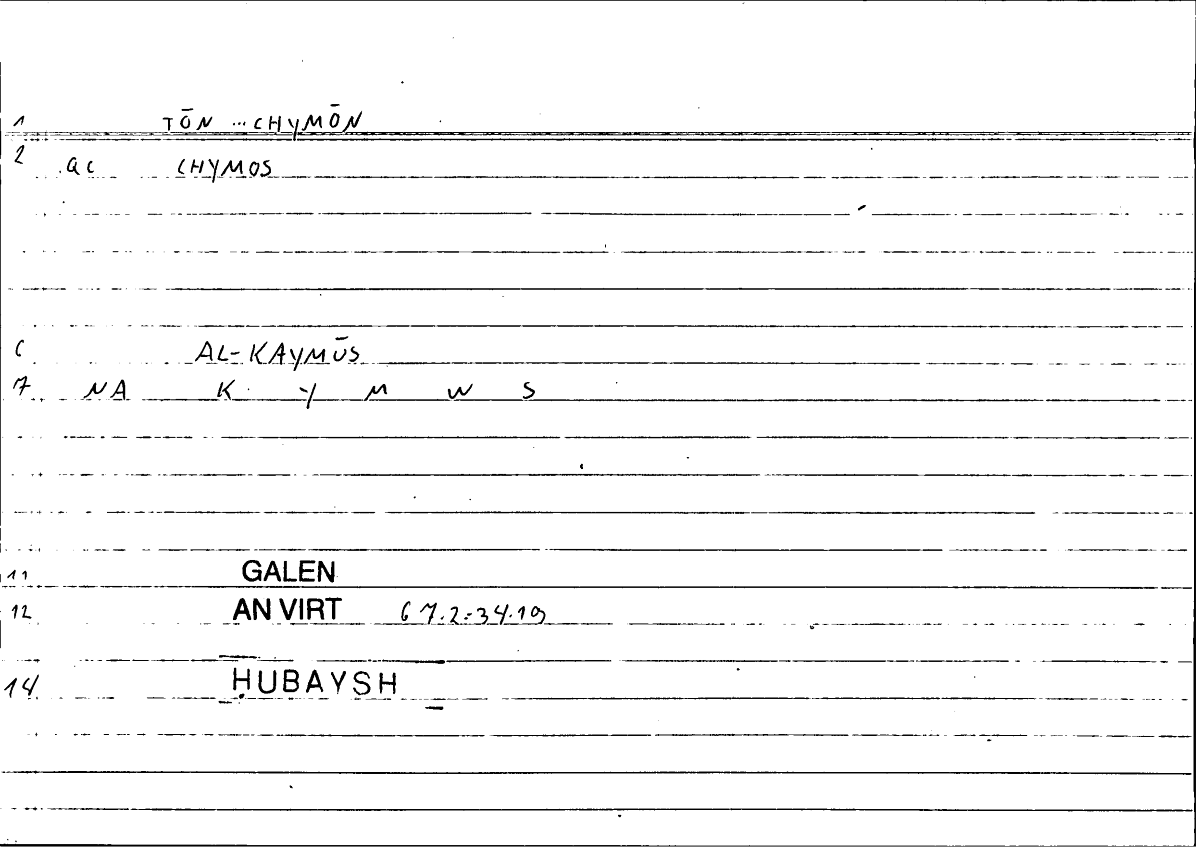 1 TŌN ... CHYMŌN
2 QC CHYMOS
6 AL-KAYMŪS
7 NA K Y M W S
11 GALEN
12 AN VIRT 67.2=34.19
14 ḤUBAYSH